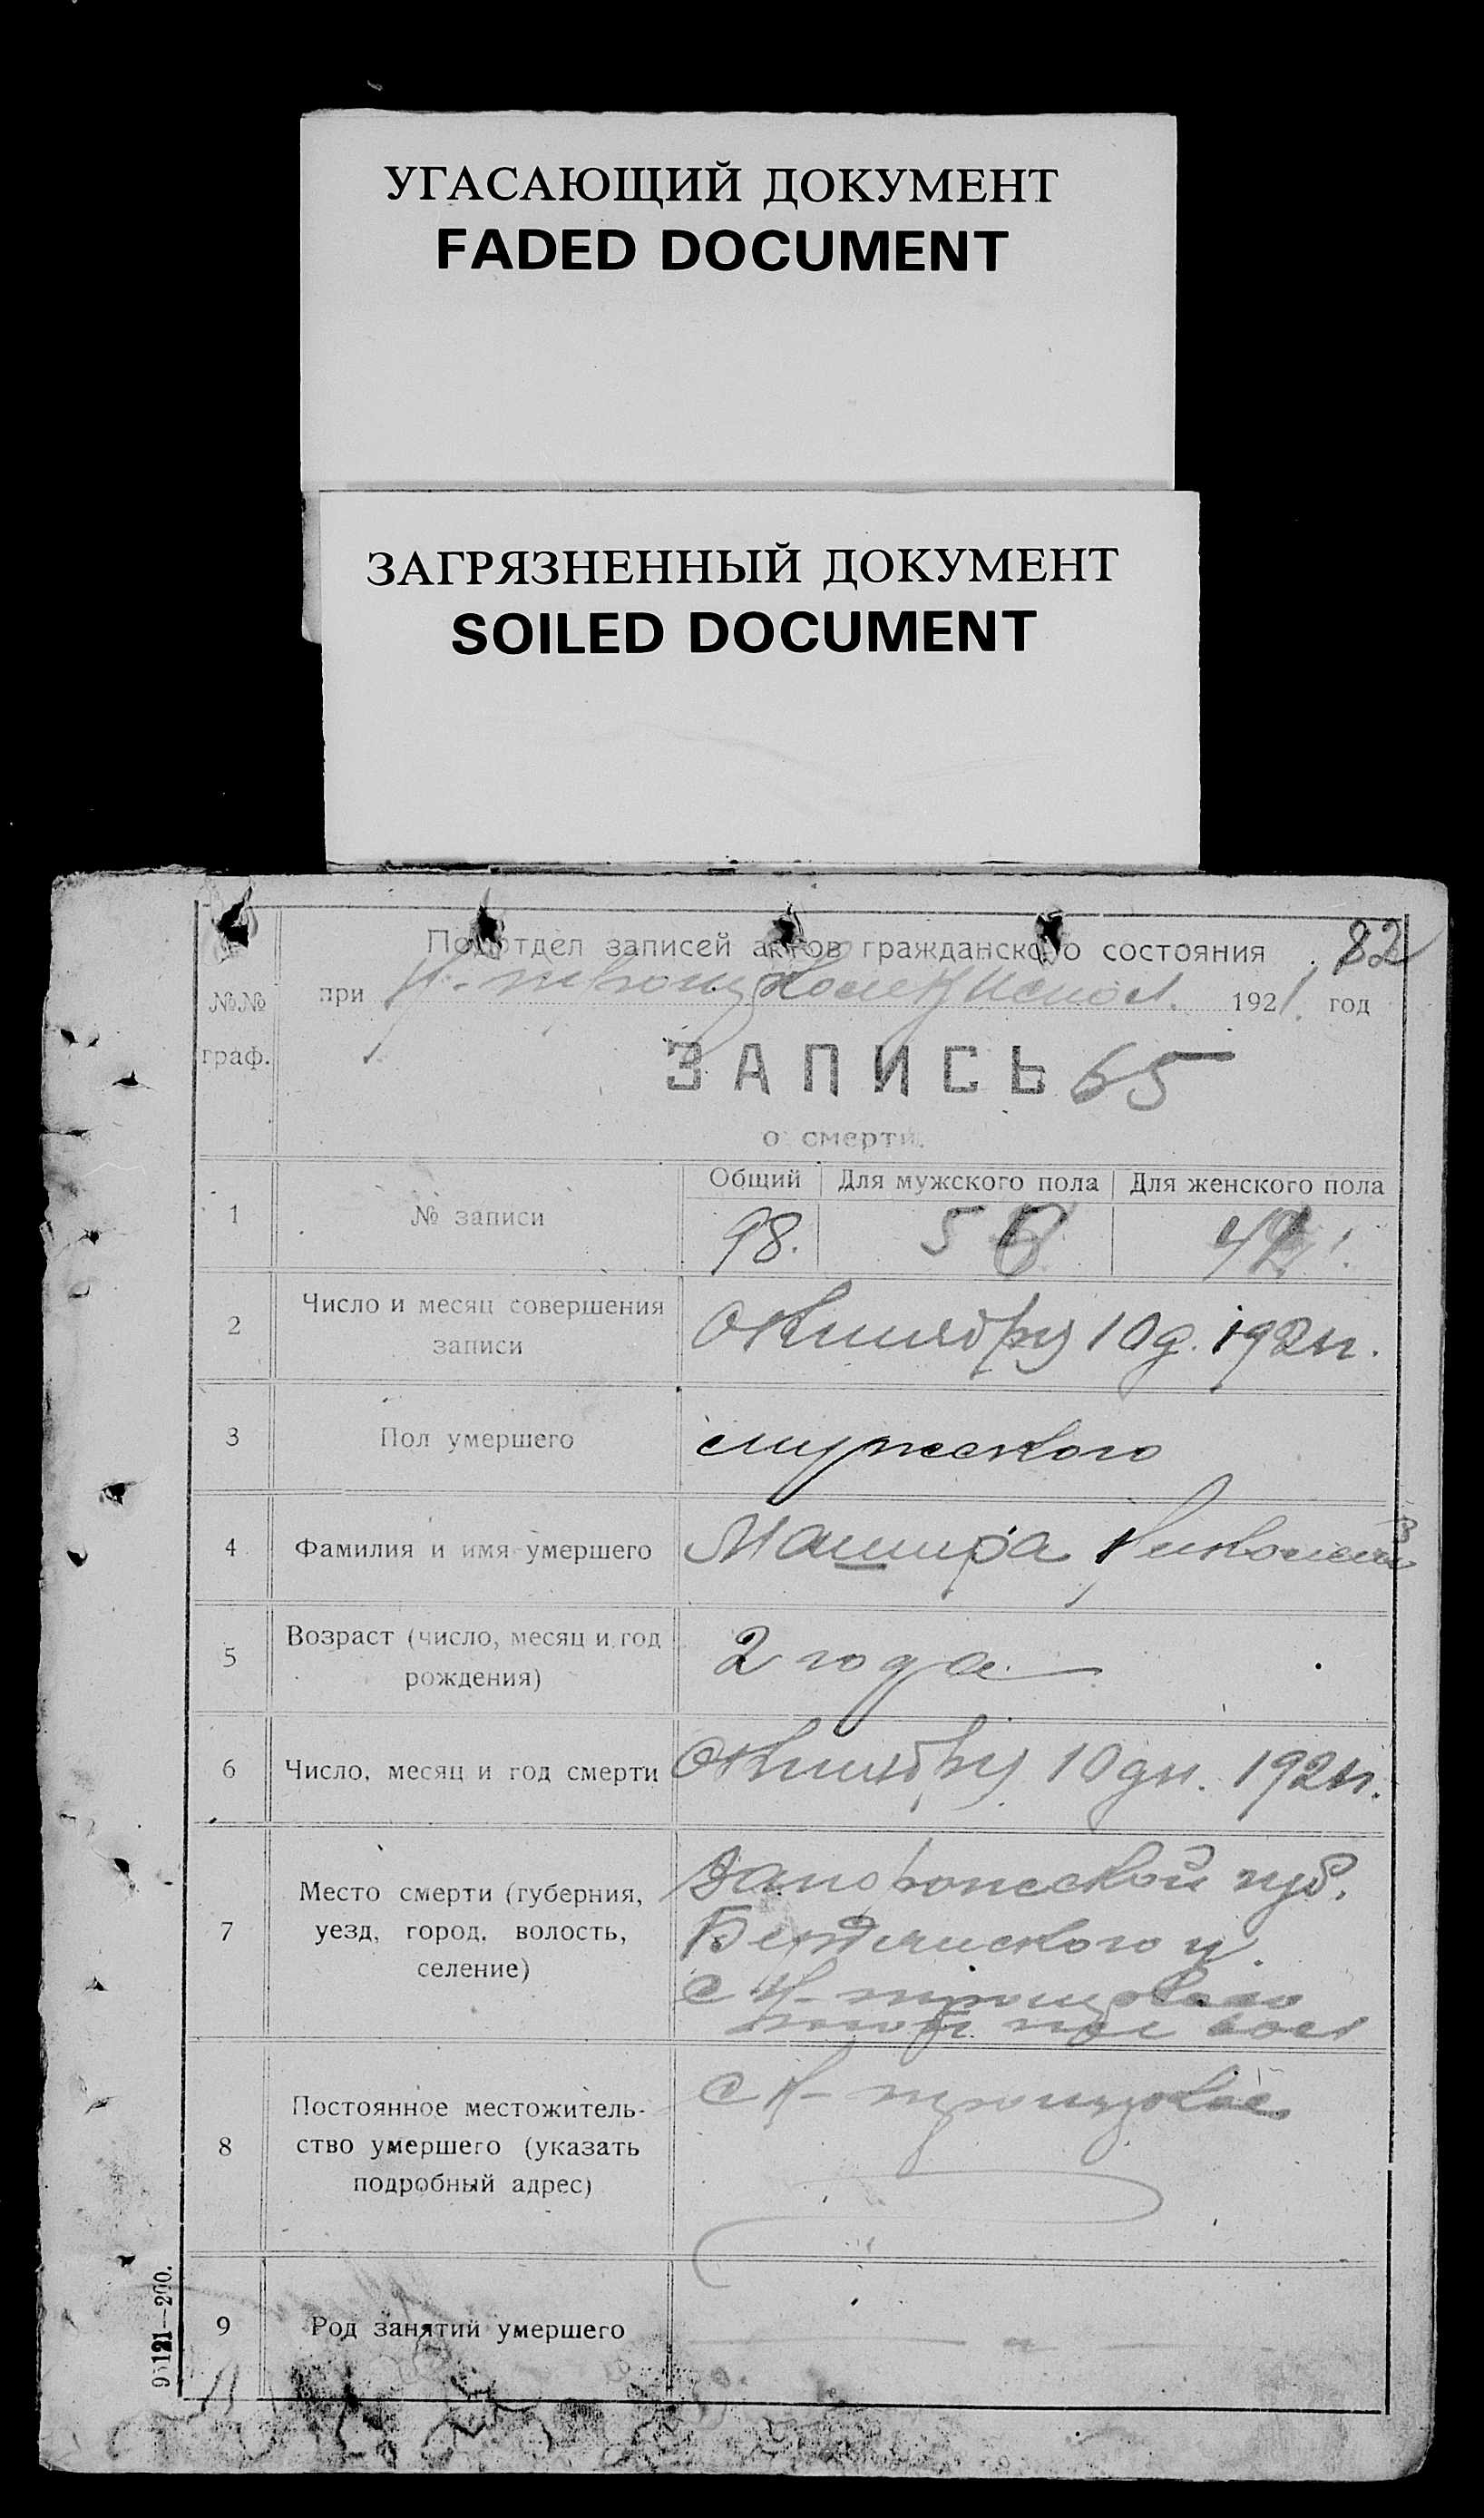 УГАСАЮЩИЙ ДОКУМЕНТ
FADED DOCUMENT
ЗАГРЯЗНЕННЫЙ ДОКУМЕНТ
SOILED DOCUMENT
Подотдел записей актов гражданского состояния
82
при
1921 год
№№
граф.
ЗАПИСЬ 65
о смерти.
Общий Для мужского пола Для женского пола
1 № записи 98. 56 42
2 Число и месяц совершения
записи
Октябру 10 д. 1921г.
3 Пол умершего мужеского
4 Фамилия и имя умершего Машира
5 Возраст (число, месяц и год
рождения)
2 года
6 Число, месяц и год смерти Октябру 10 дн. 1921г.
7 Место смерти (губерния,
уезд, город, волость,
селение)
Запорожской губ.
Бердянского у.
8 Постоянное местожитель-
ство умершего (указать
подробный адрес)
9 Род занятий умершего